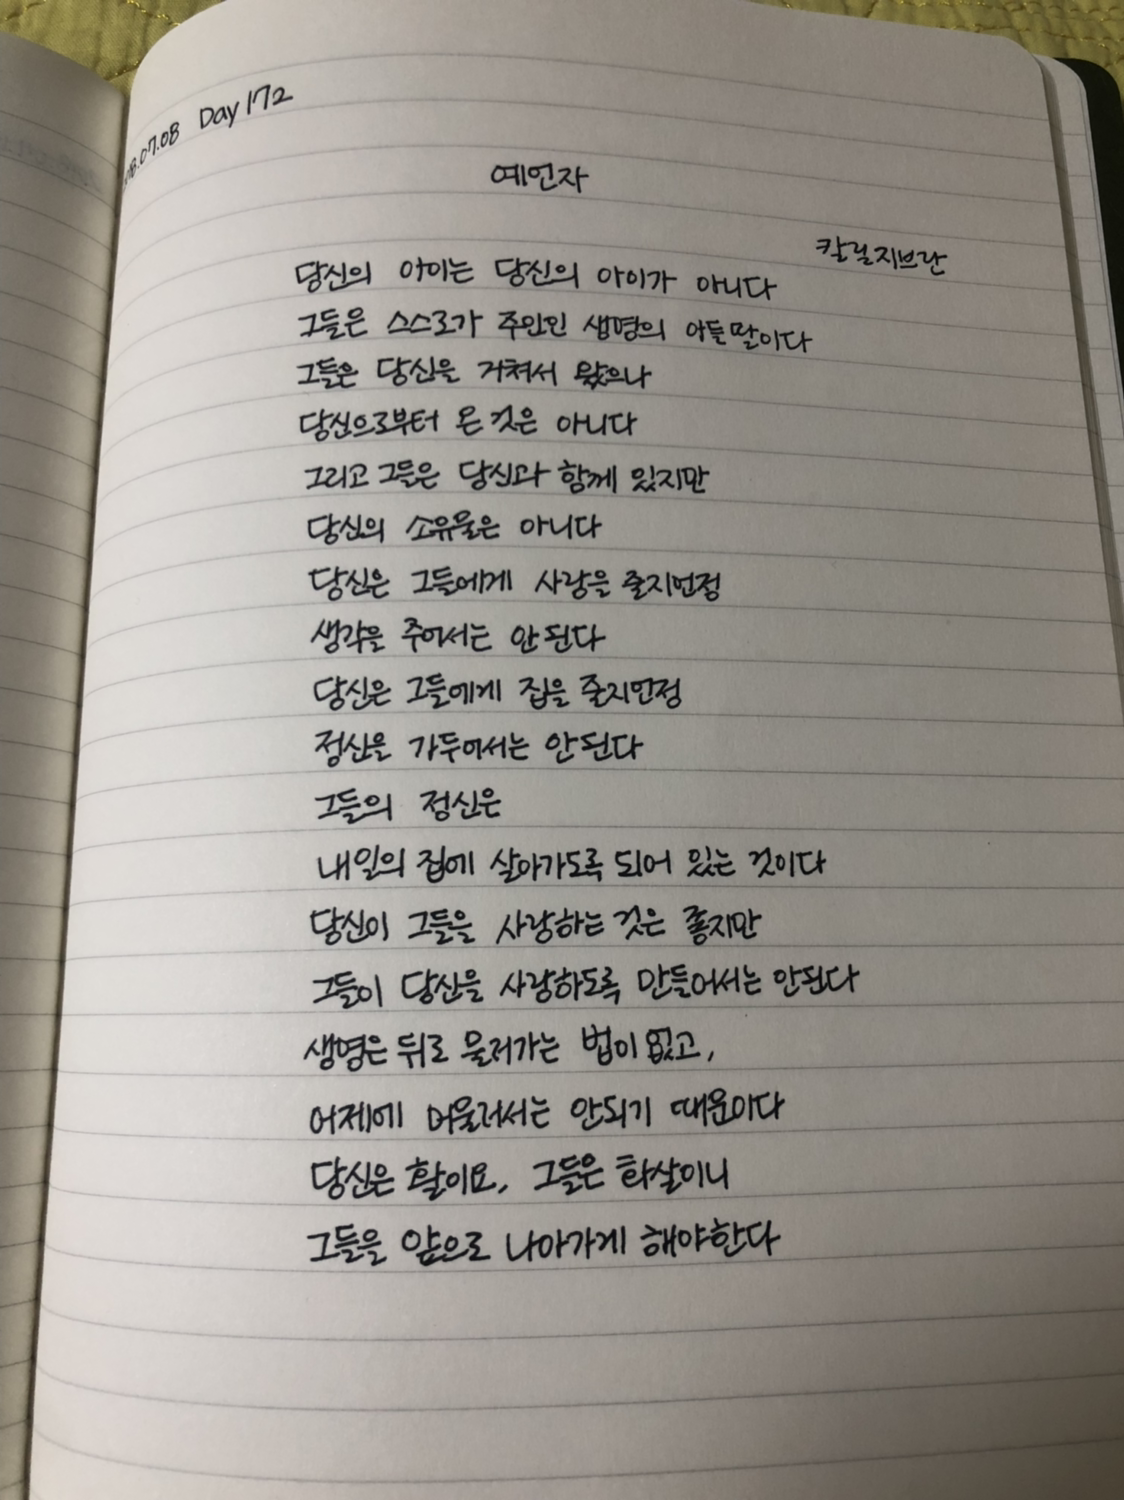 08.07.08 Day 172
예언자
칼릴지브란
당신의 아이는 당신의 아이가 아니다
그들은 스스로가 주인인 생명의 아들딸이다
그들은 당신을 거쳐서 왔으나
당신으로부터 온 것은 아니다
그리고 그들은 당신과 함께 있지만
당신의 소유물은 아니다
당신은 그들에게 사랑을 줄지언정
생각을 주어서는 안 된다
당신은 그들에게 집을 줄지언정
정신을 가두어서는 안된다
그들의 정신은
내일의 집에 살아가도록 되어 있는 것이다
당신이 그들을 사랑하는 것은 좋지만
그들이 당신을 사랑하도록 만들어서는 안된다
생명은 뒤로 물러가는 법이 없고,
어제에 머물러서는 안되기 때문이다
당신은 활이요, 그들은 화살이니
그들을 앞으로 나아가게 해야한다